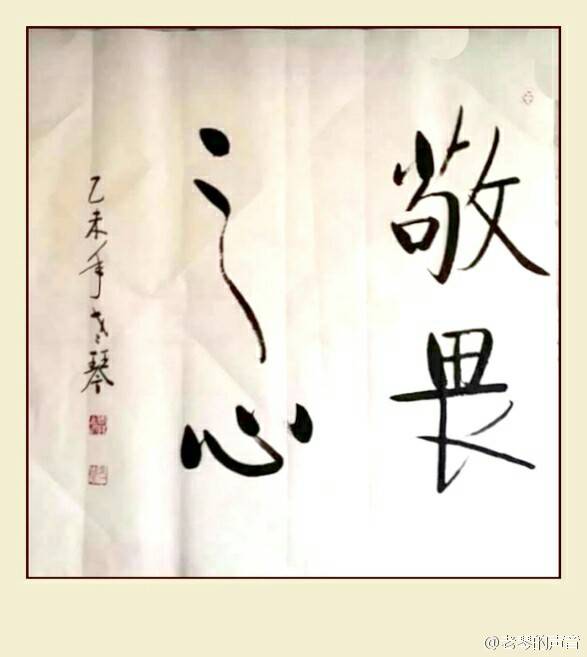 敬畏
之心
乙未年老琴
@老琴的声音